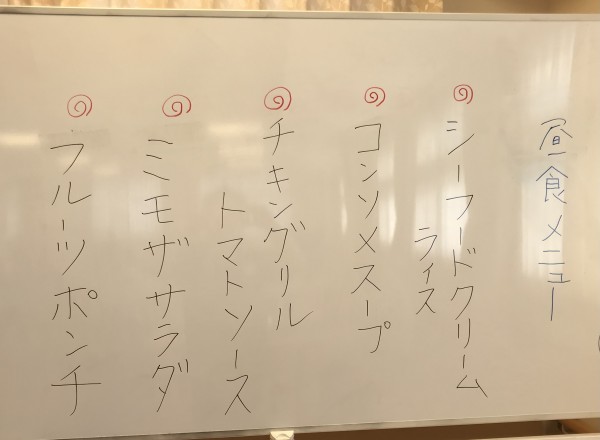 昼食メニュー
シーフードクリーム
ライス
コンソメスープ
チキングリル
トマトソース
ミモザサラダ
フルーツポンチ